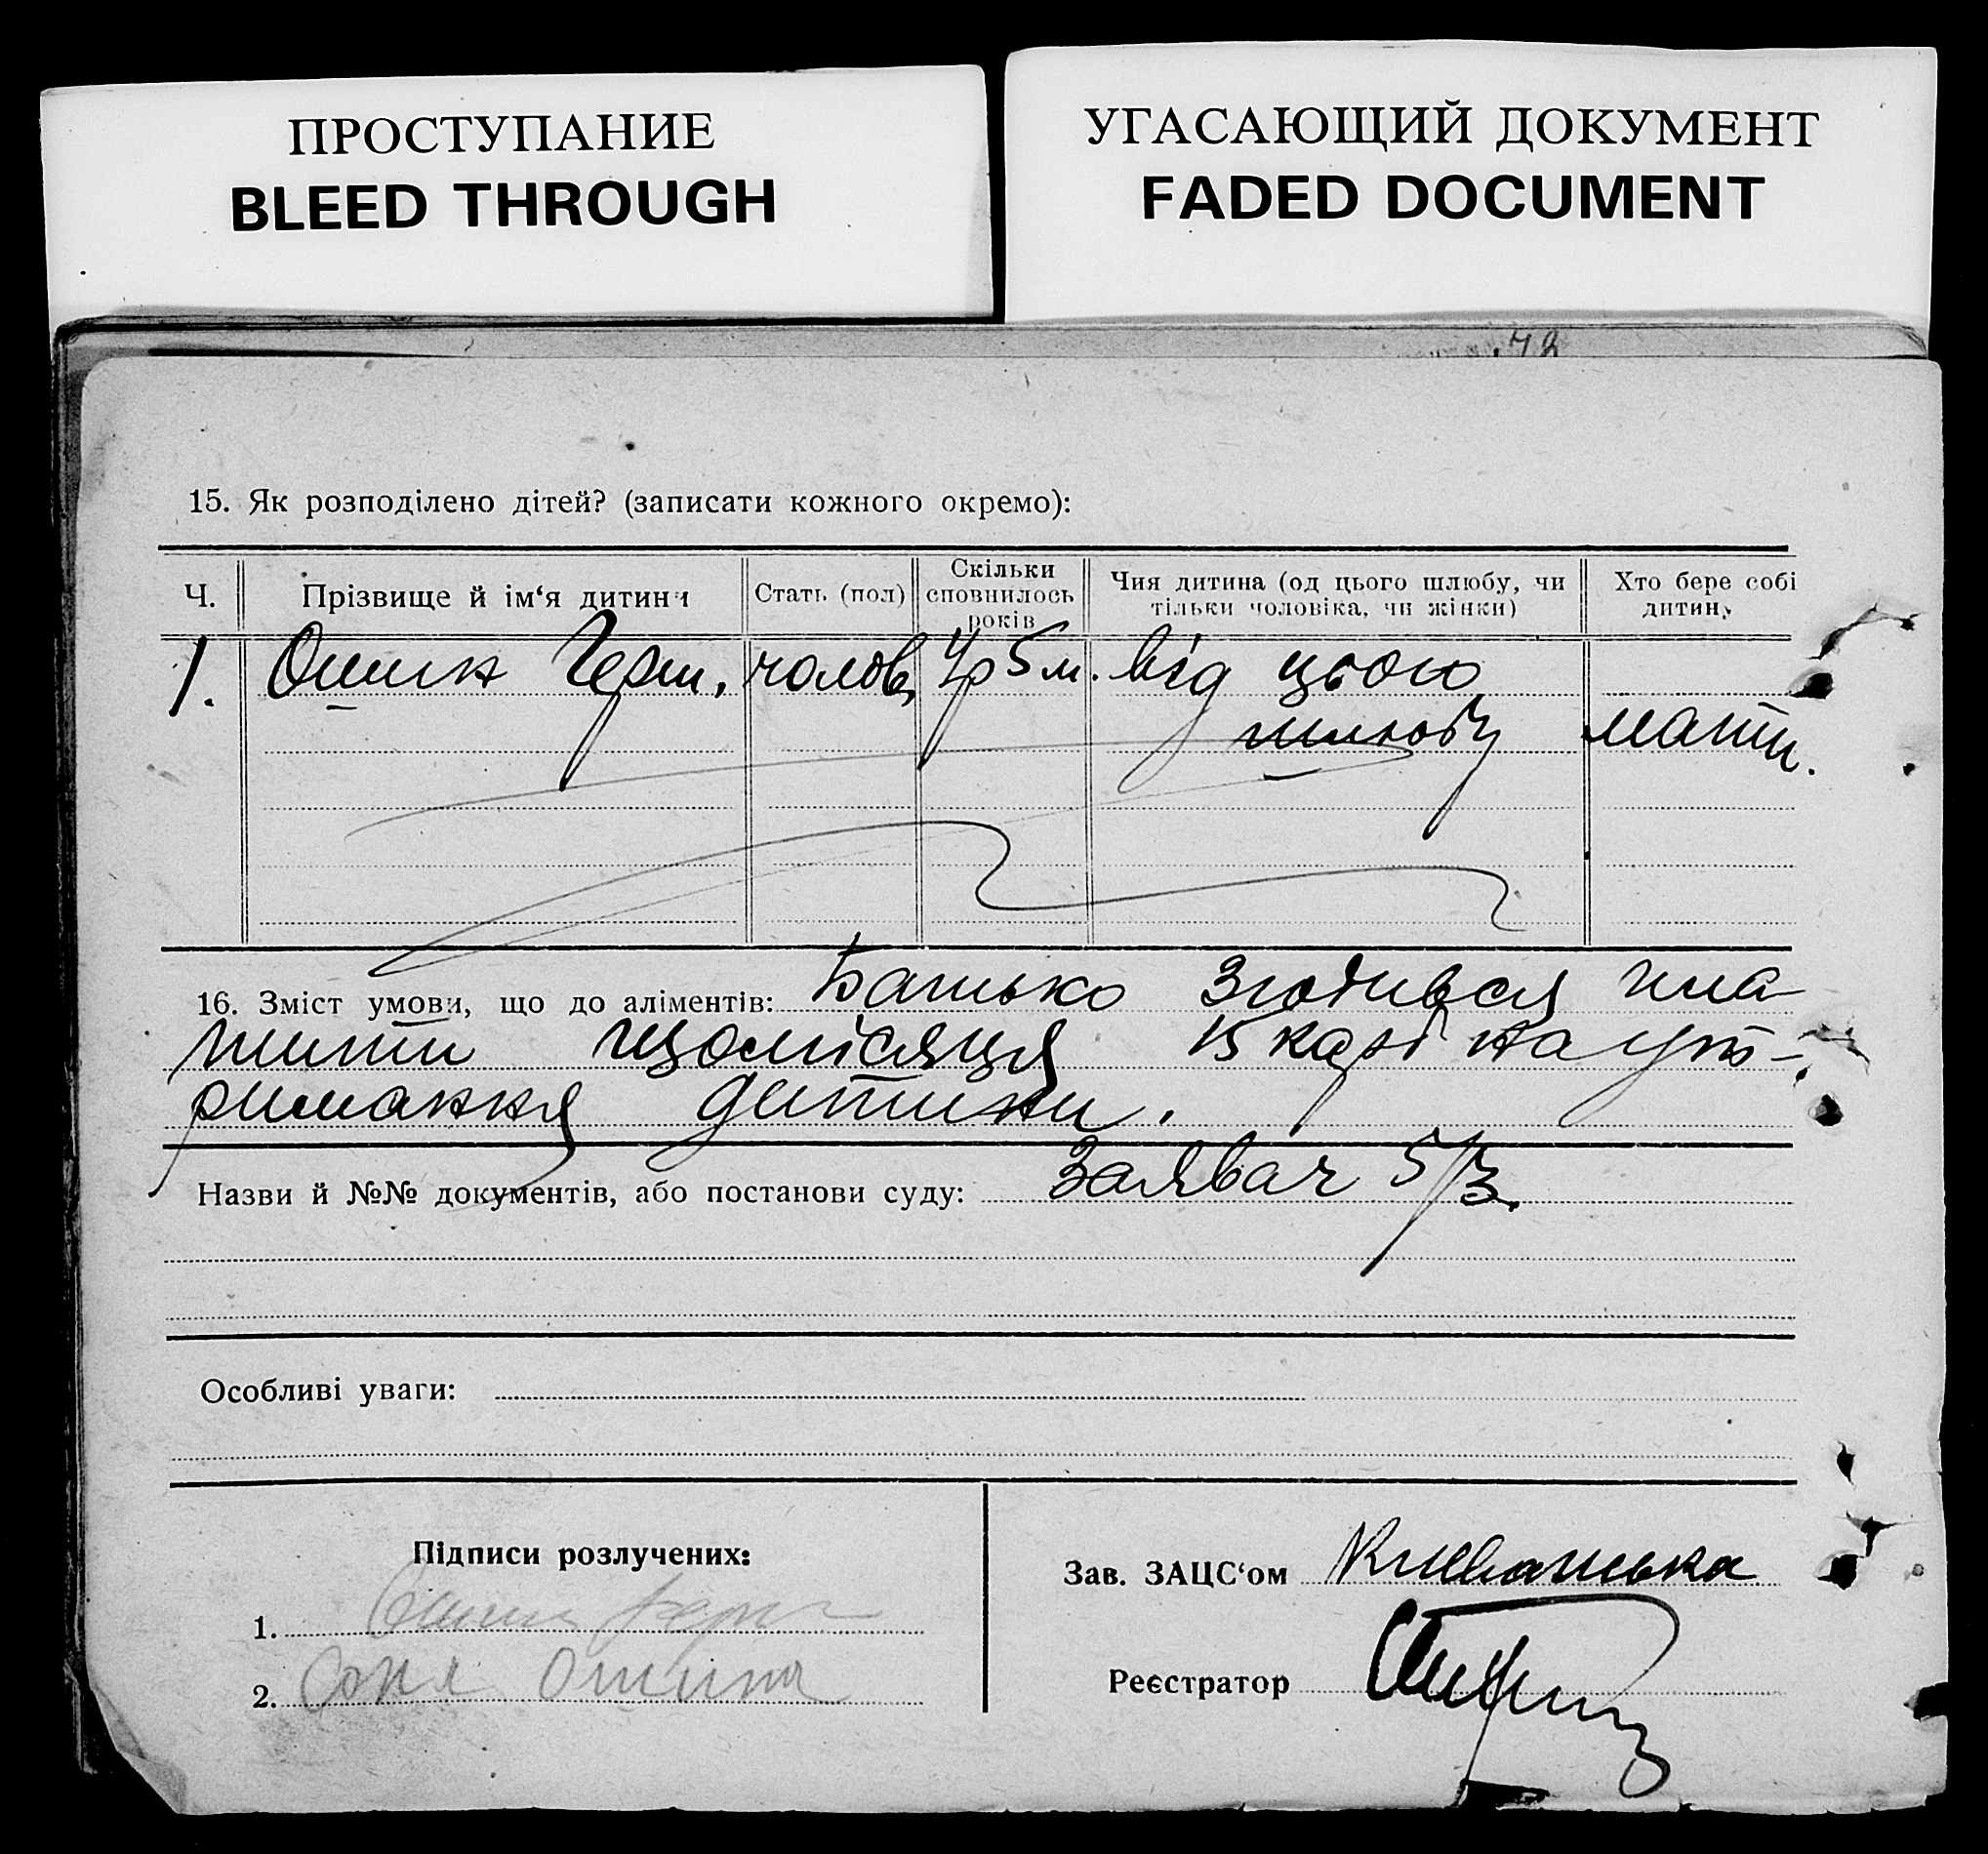 ПРОСТУПАНИЕ
BLEED THROUGH
УГАСАЮЩИЙ ДОКУМЕНТ
FADED DOCUMENT
15. Як розподілено дітей? (записати кожного окремо):
Ч. Прізвище й ім‘я дитини Стать (пол) Скільки сповнилось років Чия дитина (од цього шлюбу, чи тільки чоловіка, чи жінки) Хто бере собі дитину
1. чолов. 4р 5 м. від цього
шлюбу мати.
16. Зміст умови, що до аліментів: Батько згодився пла-
тити щомісяця 15 карб на ут-
римання дитини.
Назви й №№ документів, або постанови суду: 5/3.
Особливі уваги:
Підписи розлучених:
1.
2. Соня
Зав. ЗАЦС‘ом
Реєстратор